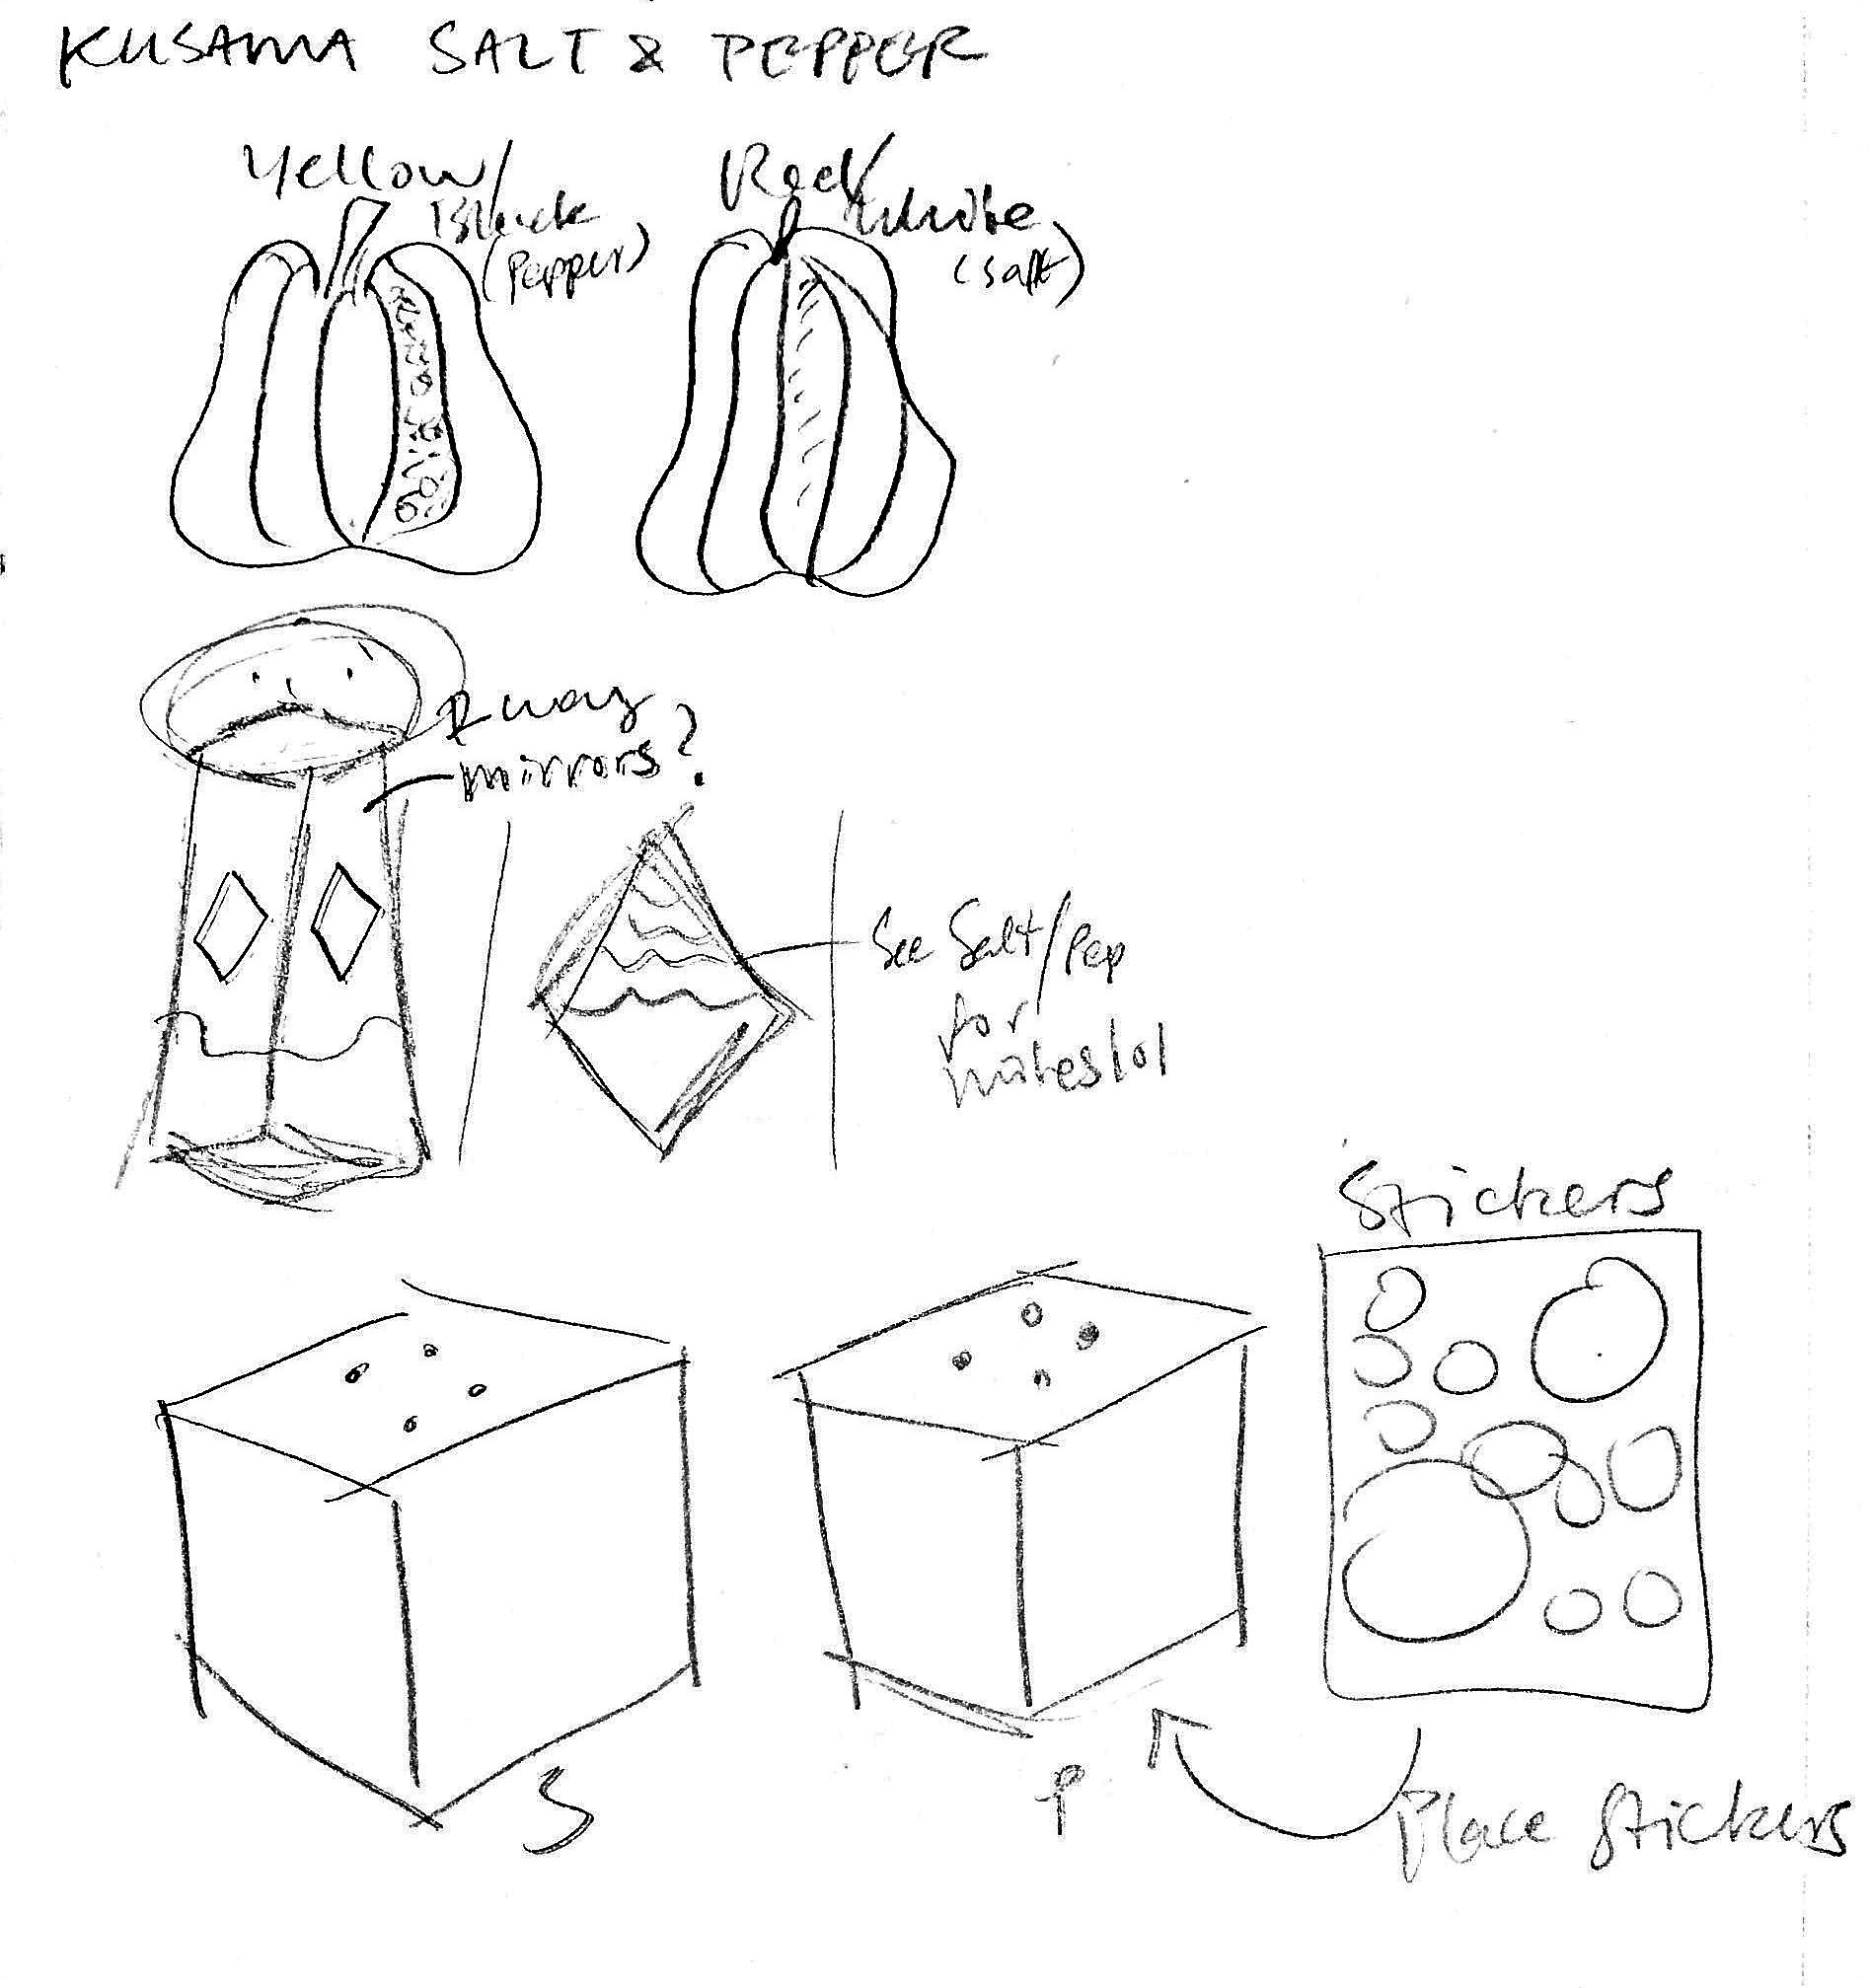 KUSAMA SALT & PEPPER
Yellow/
Black
(Pepper)
Red/
White
(Salt)
2 way
mirrors?
See Salt/Pep
for
miles lol
Stickers
S
P
Place Stickers